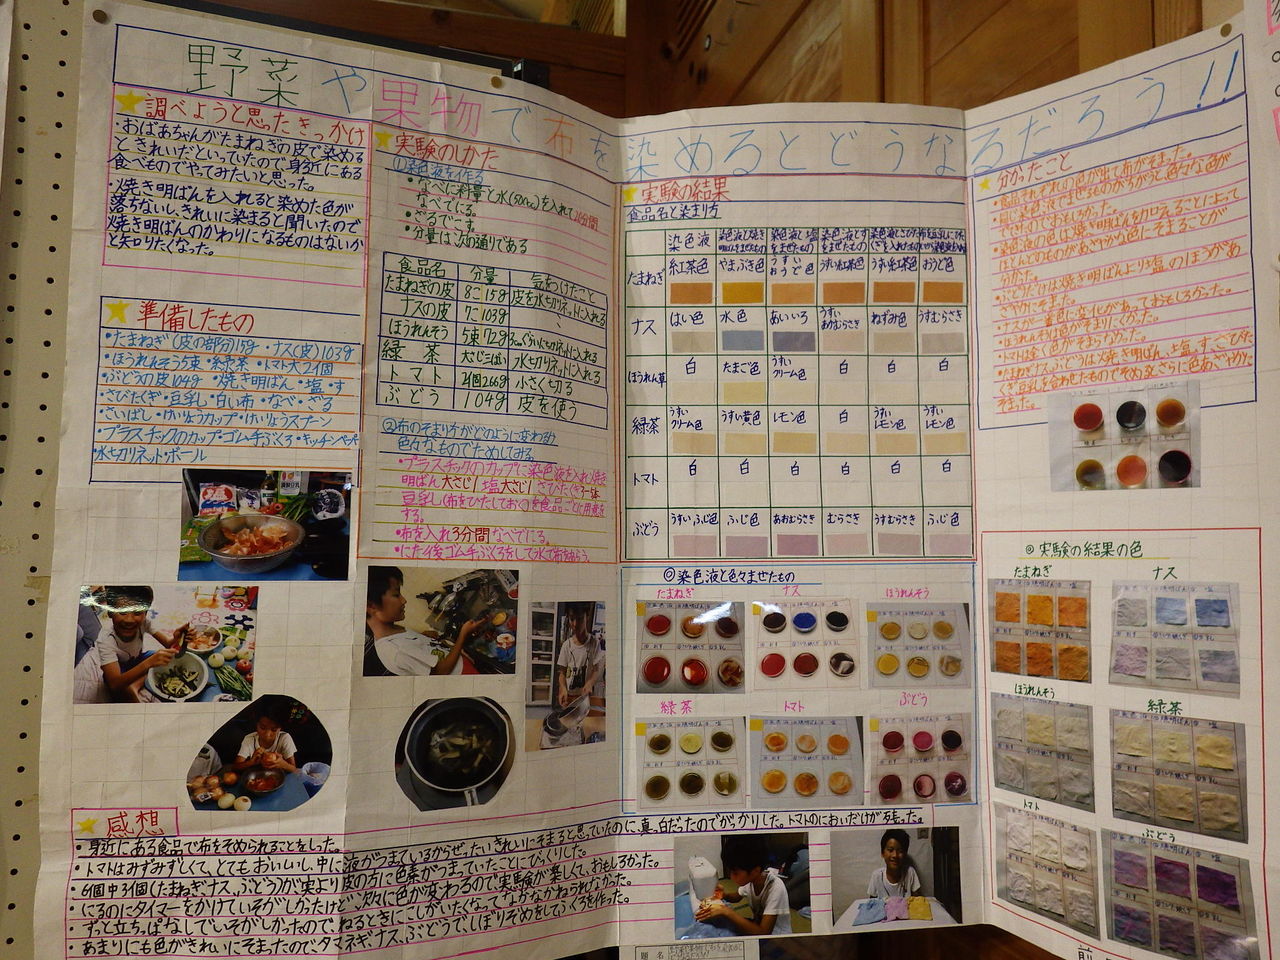 野菜や果物で布を染めるとどうなるだろう!!
調べようと思たきっかけ
・おばあちゃんがたまねぎの皮で染める
ときれいだといっていたので身近にある
食べものでやってみたいと思った。
・焼き明ばんを入れると染めた色が
落ちないし、きれいに染まると聞いたので
焼き明ばんのかわりになるものはないか
と知りたくなった。
準備したもの
・たまねぎ(皮の部分)15g・ナス(皮)103g
・ほうれんそう5束・緑茶・トマト大2個
・ぶどうの皮104g・焼き明ばん・塩・す
・さびたくぎ・豆乳・白い布・なべ・ざる
・さいばし・けいりょうカップ・けいりょうスプーン
・プラスチックのカップ・ゴム手ぶくろ・キッチンペーパー
・水切りネット・ボール
実験のしかた
①染色液を作る
・なべに材料と水(500cc)を入れて20分間
なべでにる。
・ざるでこす。
・分量は次の通りである
食品名 分量 気をつけたこと
たまねぎの皮 8こ15g 皮を水切りネットに入れる
ナスの皮 7こ103g
ほうれんそう 5束72g
緑茶 大じ5はい 水切りネットに入れる
トマト 2個266g 小さく切る
ぶどう 104g 皮を使う
②布のそまり方がどのように変わるか
色々なものでためしてみる。
・プラスチックのカップに染色液を入れ焼き
明ばん大さじ1
豆乳(布をひたしておく)を食品ごとに用意
する。
・布を入れ3分間なべでにる。
・にた後ゴム手ぶくろをして水で布をあらう。
実験の結果
食品名と染まり方
染色液
たまねぎ 紅茶色 やまぶき色 うすいおうど色 うすい紅茶色 うすい紅茶色 おうど色
ナス はい色 水色 あいいろ うすいあおむらさき ねずみ色 うすむらさき
ほうれん草 白 たまご色 うすいクリーム色 白 白 白
緑茶 うすいクリーム色 うすい黄色 レモン色 白 うすいレモン色 うすいレモン色
トマト 白 白 白 白 白 白
ぶどう うすいふじ色 ふじ色 あおむらさき むらさき うすむらさき ふじ色
◎染色液と色々まぜたもの
たまねぎ ナス ほうれんそう
緑茶 トマト ぶどう
分かったこと
・食品それぞれの色が出て布がそまった。
・同じ染色液でまぜるものがちがうと色々な色が
できたのでおもしろかった。
・染色液の色は焼き明ばんを加えることによって
ほとんどのものがあざやかな色にそまることが
分かった。
・ぶどうだけは焼き明ばんより塩のほうがあ
ざやかにそまった。
・ナスが一番色に変化があっておもしろかった。
・ほうれんそうは色がそまりにくかった。
・トマトは全く色がそまらなかった。
◎実験の結果の色
たまねぎ ナス
ほうれんそう 緑茶
トマト ぶどう
感想
・身近にある食品で布をそめられることをしった。
・トマトはみずみずしくて、とてもおいしいし、中に液がつまているからぜったいきれいにそまると思っていたのに、真っ白だったのでがっかりした。トマトのにおいだけが残った。
・6個中3個(たまねぎ、ナス、ぶどう)が実より皮の方に色素がつまっていたことにびっくりした。
・にるのにタイマーをかけていそがしかったけど、次々に色が変わるので実験が楽しくて、おもしろかった。
・ずっと立ちっぱなしでいそがしかったので、ねるときにこしがいたくなってなかなかねられなかった。
・あまりにも色がきれいにそまったのでタマネギ、ナス、ぶどうで、しぼりぞめをしてふくろを作った。
題名